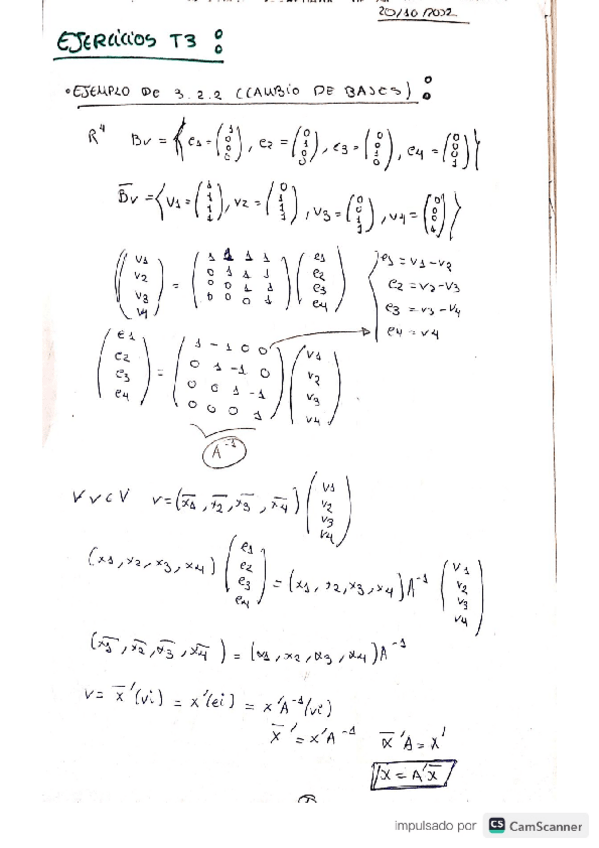 20/10/2022
EJERCICIOS T3 :
• EJEMPLO DE 3.2.2 (CAMBIO DE BASES) :
R⁴ Bv = { e1 = (1 0 0 0), e2 = (0 1 0 0), e3 = (0 0 1 0), e4 = (0 0 0 1) }
B̅v = { v1 = (1 1 1 1), v2 = (0 1 1 1), v3 = (0 0 1 1), v4 = (0 0 0 1) }
(v1 v2 v3 v4) = (1 1 1 1 / 0 1 1 1 / 0 0 1 1 / 0 0 0 1) (e1 e2 e3 e4)
e1 = v1 - v2
e2 = v2 - v3
e3 = v3 - v4
e4 = v4
(e1 e2 e3 e4) = (1 -1 0 0 / 0 1 -1 0 / 0 0 1 -1 / 0 0 0 1) (v1 v2 v3 v4)
A⁻¹
∀ v ⊂ V v = (x̅1, x̅2, x̅3, x̅4) (v1 v2 v3 v4)
(x1, x2, x3, x4) (e1 e2 e3 e4) = (x1, x2, x3, x4) A⁻¹ (v1 v2 v3 v4)
(x̅1, x̅2, x̅3, x̅4) = (x1, x2, x3, x4) A⁻¹
v = x̅'(vi) = x'(ei) = x'A⁻¹(vi)
x̅' = x'A⁻¹ x̅'A = x'
x = A'x̅
impulsado por CS CamScanner